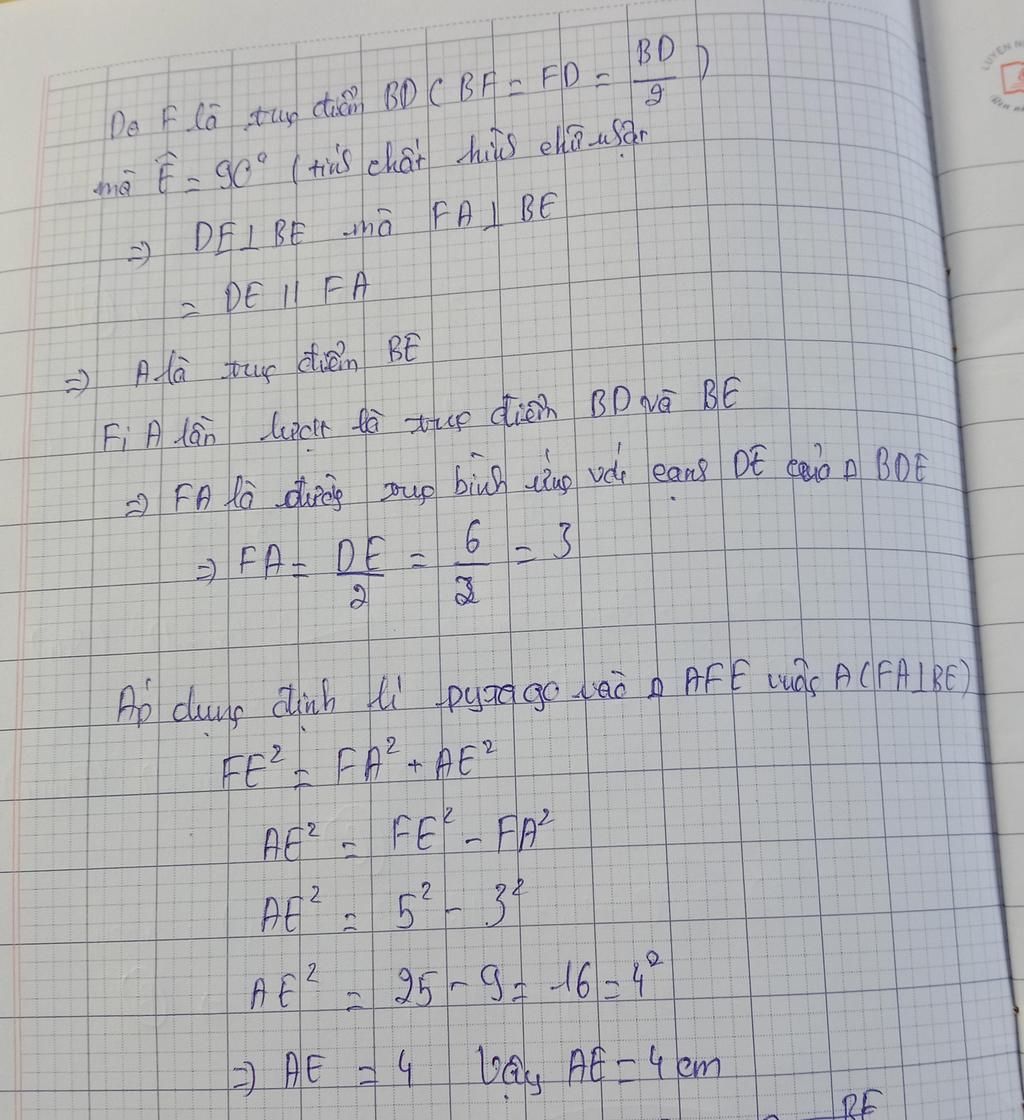 Do F là trung điểm BD ( BF = FD = BD/2 )
mà Ê = 90° (tính chất hình chữ nhật
=> DE ⊥ BE mà FA ⊥ BE
= DE // FA
=> A là trung điểm BE
F; A lần lượt là trung điểm BD và BE
=> FA là đường trung bình ứng với cạnh DE của Δ BDE
=> FA = DE/2 = 6/2 = 3
Áp dụng định lí pytago vào Δ AFE vuông A (FA⊥BE)
FE² = FA² + AE²
AE² = FE² - FA²
AE² = 5² - 3²
AE² = 25 - 9 = 16 = 4²
=> AE = 4 Vậy AE = 4 cm
BE
LUYỆN